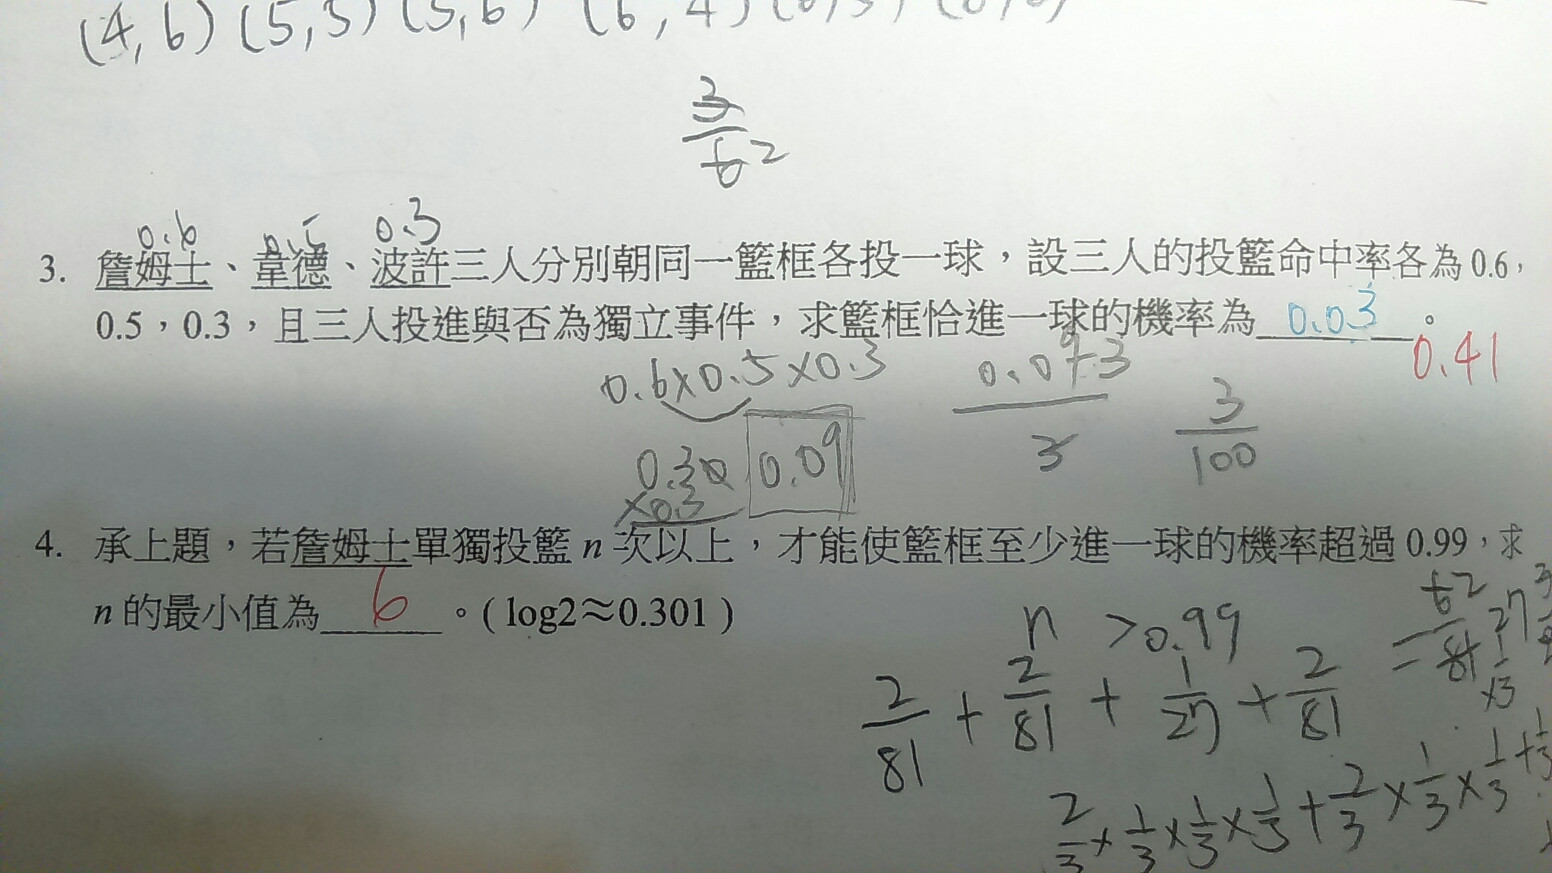 (4,6) (5,5) (5,6) (6,4)
3
6 2
0.6 0.5 0.3
3. 詹姆士、韋德、波許三人分別朝同一籃框各投一球，設三人的投籃命中率各為 0.6，
0.5，0.3，且三人投進與否為獨立事件，求籃框恰進一球的機率為 0.03 。
0.41
0.6×0.5×0.3
0.09 3
3
3
100
0.30
×0.3
0.09
4. 承上題，若詹姆士單獨投籃 n 次以上，才能使籃框至少進一球的機率超過 0.99，求
n 的最小值為 6 。( log2≈0.301 )
n >0.99
2/81 + 2/81 + 1/27 + 2/81
2/3 × 1/3 × 1/3 × 1/3 + 2/3 × 1/3 × 1/3 +